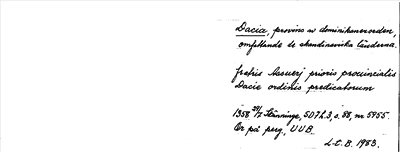 Dacia, provins av dominikanerorden,
omfattande de skandinaviska länderna.
fratris Assuerj prioris prouincialis
Dacie ordinis predicatorum
1358 29/7 Skänninge, SD 7 h.3, s. 88, nr 5955.
Or på perg, UUB.
L-E. B. 1983.